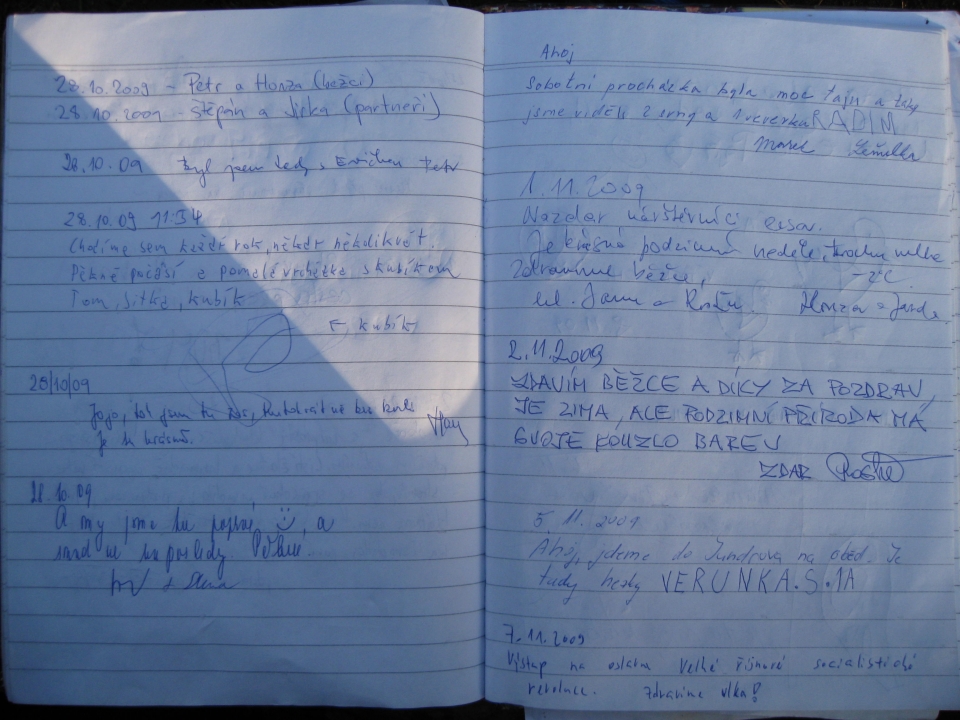 28.10.2009 - Petr a Honza (běžci)
28.10.2009 - Štěpán a Jirka (partneři)
28.10.09 Byl jsem tady s Petr
28.10.09 11:54
Chodíme sem každý rok, někdy několikrát.
Pěkné počasí a pomalá s kubíkem
Tom, Jitka, kubík
← kubík
28/10/09
Jojo, byl jsem tu
je tu krásně.
28.10.09
A my jsme tu poprvé ☺, a
snad ne naposledy.
Ahoj
Sobotní procházka byla moc tajn a taky
jsme viděli 2 srny a 1 veverku RADIM
Marek
1.11.2009
Nazdar návštěvníci
Je krásná podzimní neděle, trochu mlha
Zdravíme běžce, -2°C.
ml. Janu a Honza a Jarda
2.11.2009
ZDAVÍM BĚŽCE A DÍKY ZA POZDRAV,
JE ZIMA, ALE PODZIMNÍ PŘÍRODA MÁ
SVOJE KOUZLO BAREV
ZDAR
5. 11. 2009
Ahoj, jdeme do Jundrova na oběd. Je
tady hezky VERUNKA.S.1A
7.11.2009
Výstup na oslavu Velké říjnové socialistické
revoluce. Zdravíme vlka!